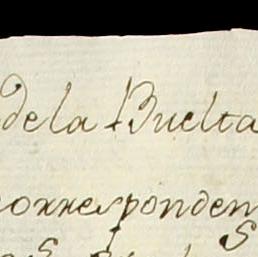 de la Buelta
corresponden